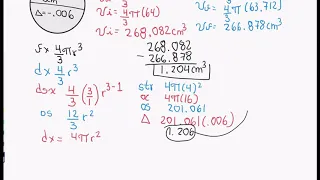 Δ=-.006
Vi = 4/3 π(64)
Vi = 268.082 cm³
Vf = 4/3 π(63.712)
Vf = 266.878 cm³
fx 4/3 πr³
dx 4/3 r³
dsx 4/3 (3/1) r³⁻¹
os 12/3 r²
dx = 4πr²
268.082
- 266.878
1.204 cm³
str 4π(4)²
∝ 4π(16)
os 201.061
Δ 201.061(.006)
1.206